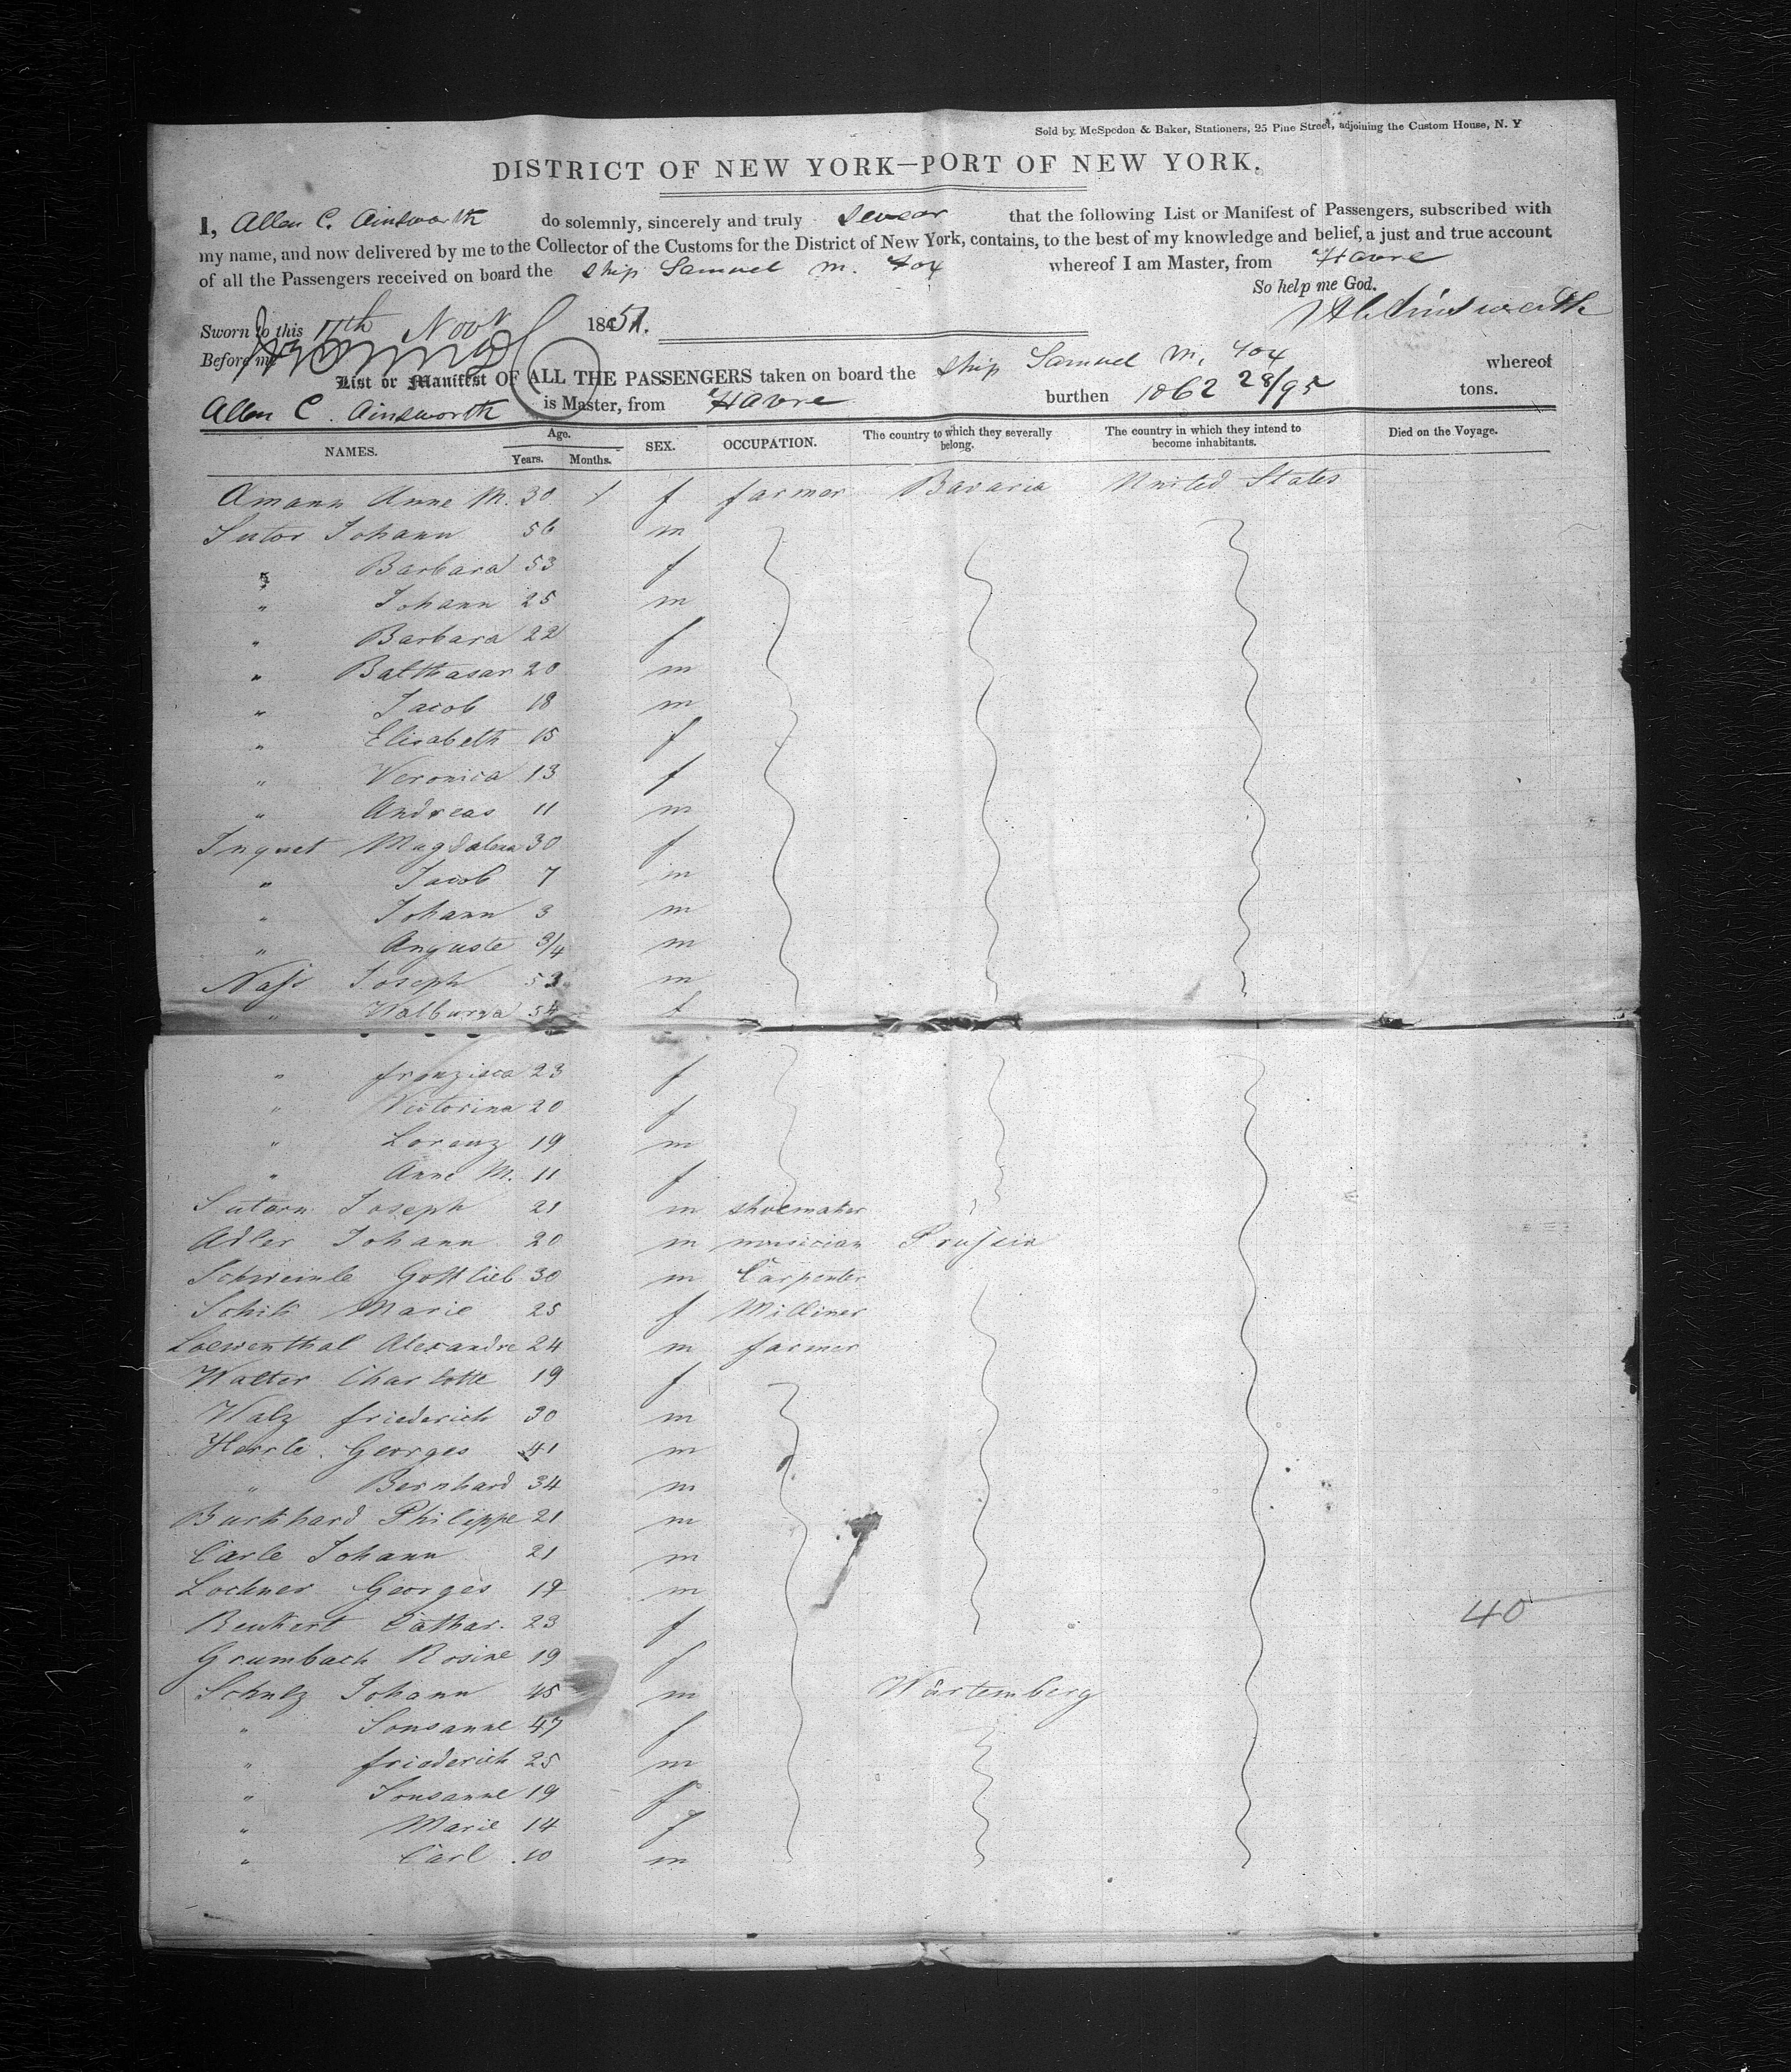 Sold by McSpedon & Baker, Stationers, 25 Pine Street, adjoining the Custom House, N. Y
DISTRICT OF NEW YORK—PORT OF NEW YORK.
I, Allen C. Ainsworth do solemnly, sincerely and truly swear that the following List or Manifest of Passengers, subscribed with
my name, and now delivered by me to the Collector of the Customs for the District of New York, contains, to the best of my knowledge and belief, a just and true account
of all the Passengers received on board the Ship Samuel M. Fox whereof I am Master, from Havre
So help me God.
Sworn to this 17th Novr 1851. A C Ainsworth
Before me
List or Manifest OF ALL THE PASSENGERS taken on board the Ship Samuel M. Fox whereof
Allen C. Ainsworth is Master, from Havre burthen 1062 28/95 tons.
NAMES. Age. Years. Months. SEX. OCCUPATION. The country to which they severally belong. The country in which they intend to become inhabitants. Died on the Voyage.
Amann Anne M. 30 f farmer Bavaria United States
Sutor Johann 56 m
" Barbara 53 f
" Johann 25 m
" Barbara 22 f
" Balthasar 20 m
" Jacob 18 m
" Elisabeth 15 f
" Veronica 13 f
" Andreas 11 m
Inquet Magdalena 30 f
" Jacob 7 m
" Johann 3 m
" Auguste 3/4 m
Nass Joseph 53 m
" Walburga 54 f
" franzisca 23 f
" Victorina 20 f
" Lorenz 19 m
" Anne M. 11 f
Sutorn Joseph 21 m shoemaker
Adler Johann 20 m musician Prussia
Schweinle Gottlieb 30 m Carpenter
Marie 25 f Milliner
Loewenthal Alexandre 24 m farmer
Walter Charlotte 19 f
Walz friederich 30 m
Herrle Georges 41 m
" Bernhard 34 m
Burkhard Philippe 21 m
Carle Johann 21 m
Lochner Georges 19 m
Beukert Cathar. 23 f 40
Grumbach Rosine 19 f
Schulz Johann 45 m Würtemberg
" Sousanne 47 f
" friederich 25 m
" Sousanne 19 f
" Marie 14 f
" Carl 10 m